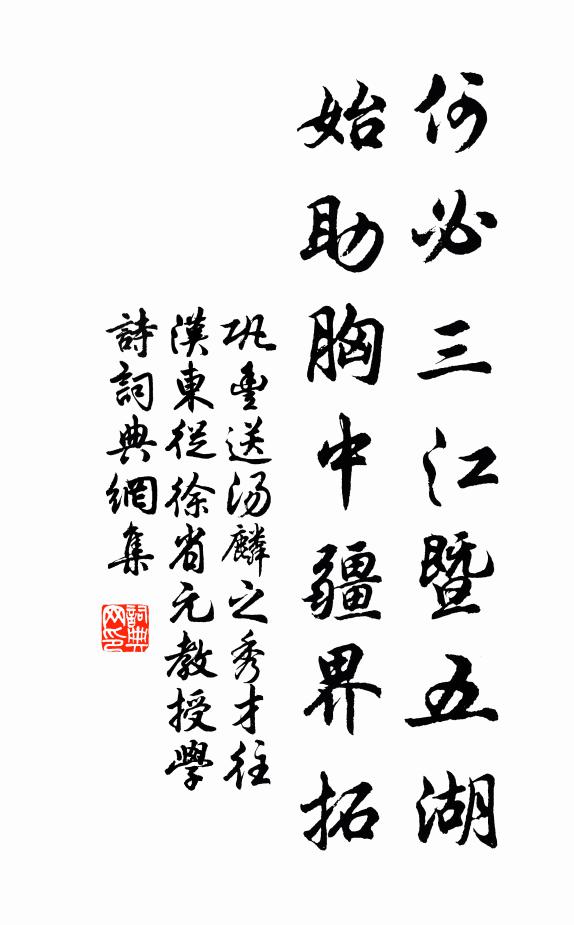 何必三江暨五湖
始助胸中疆界拓
巩豊送汤麟之秀才往
漢東從徐省元教授學
詩詞典網集
詞典網印